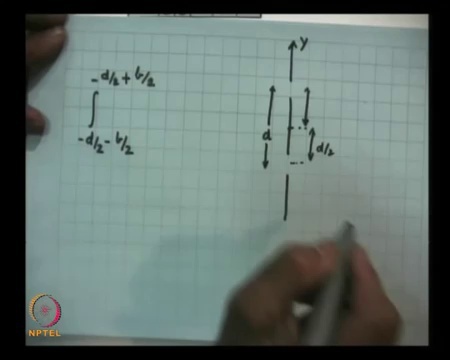 -d/2 + b/2
∫
-d/2 - b/2
y
d
d/2
NPTEL